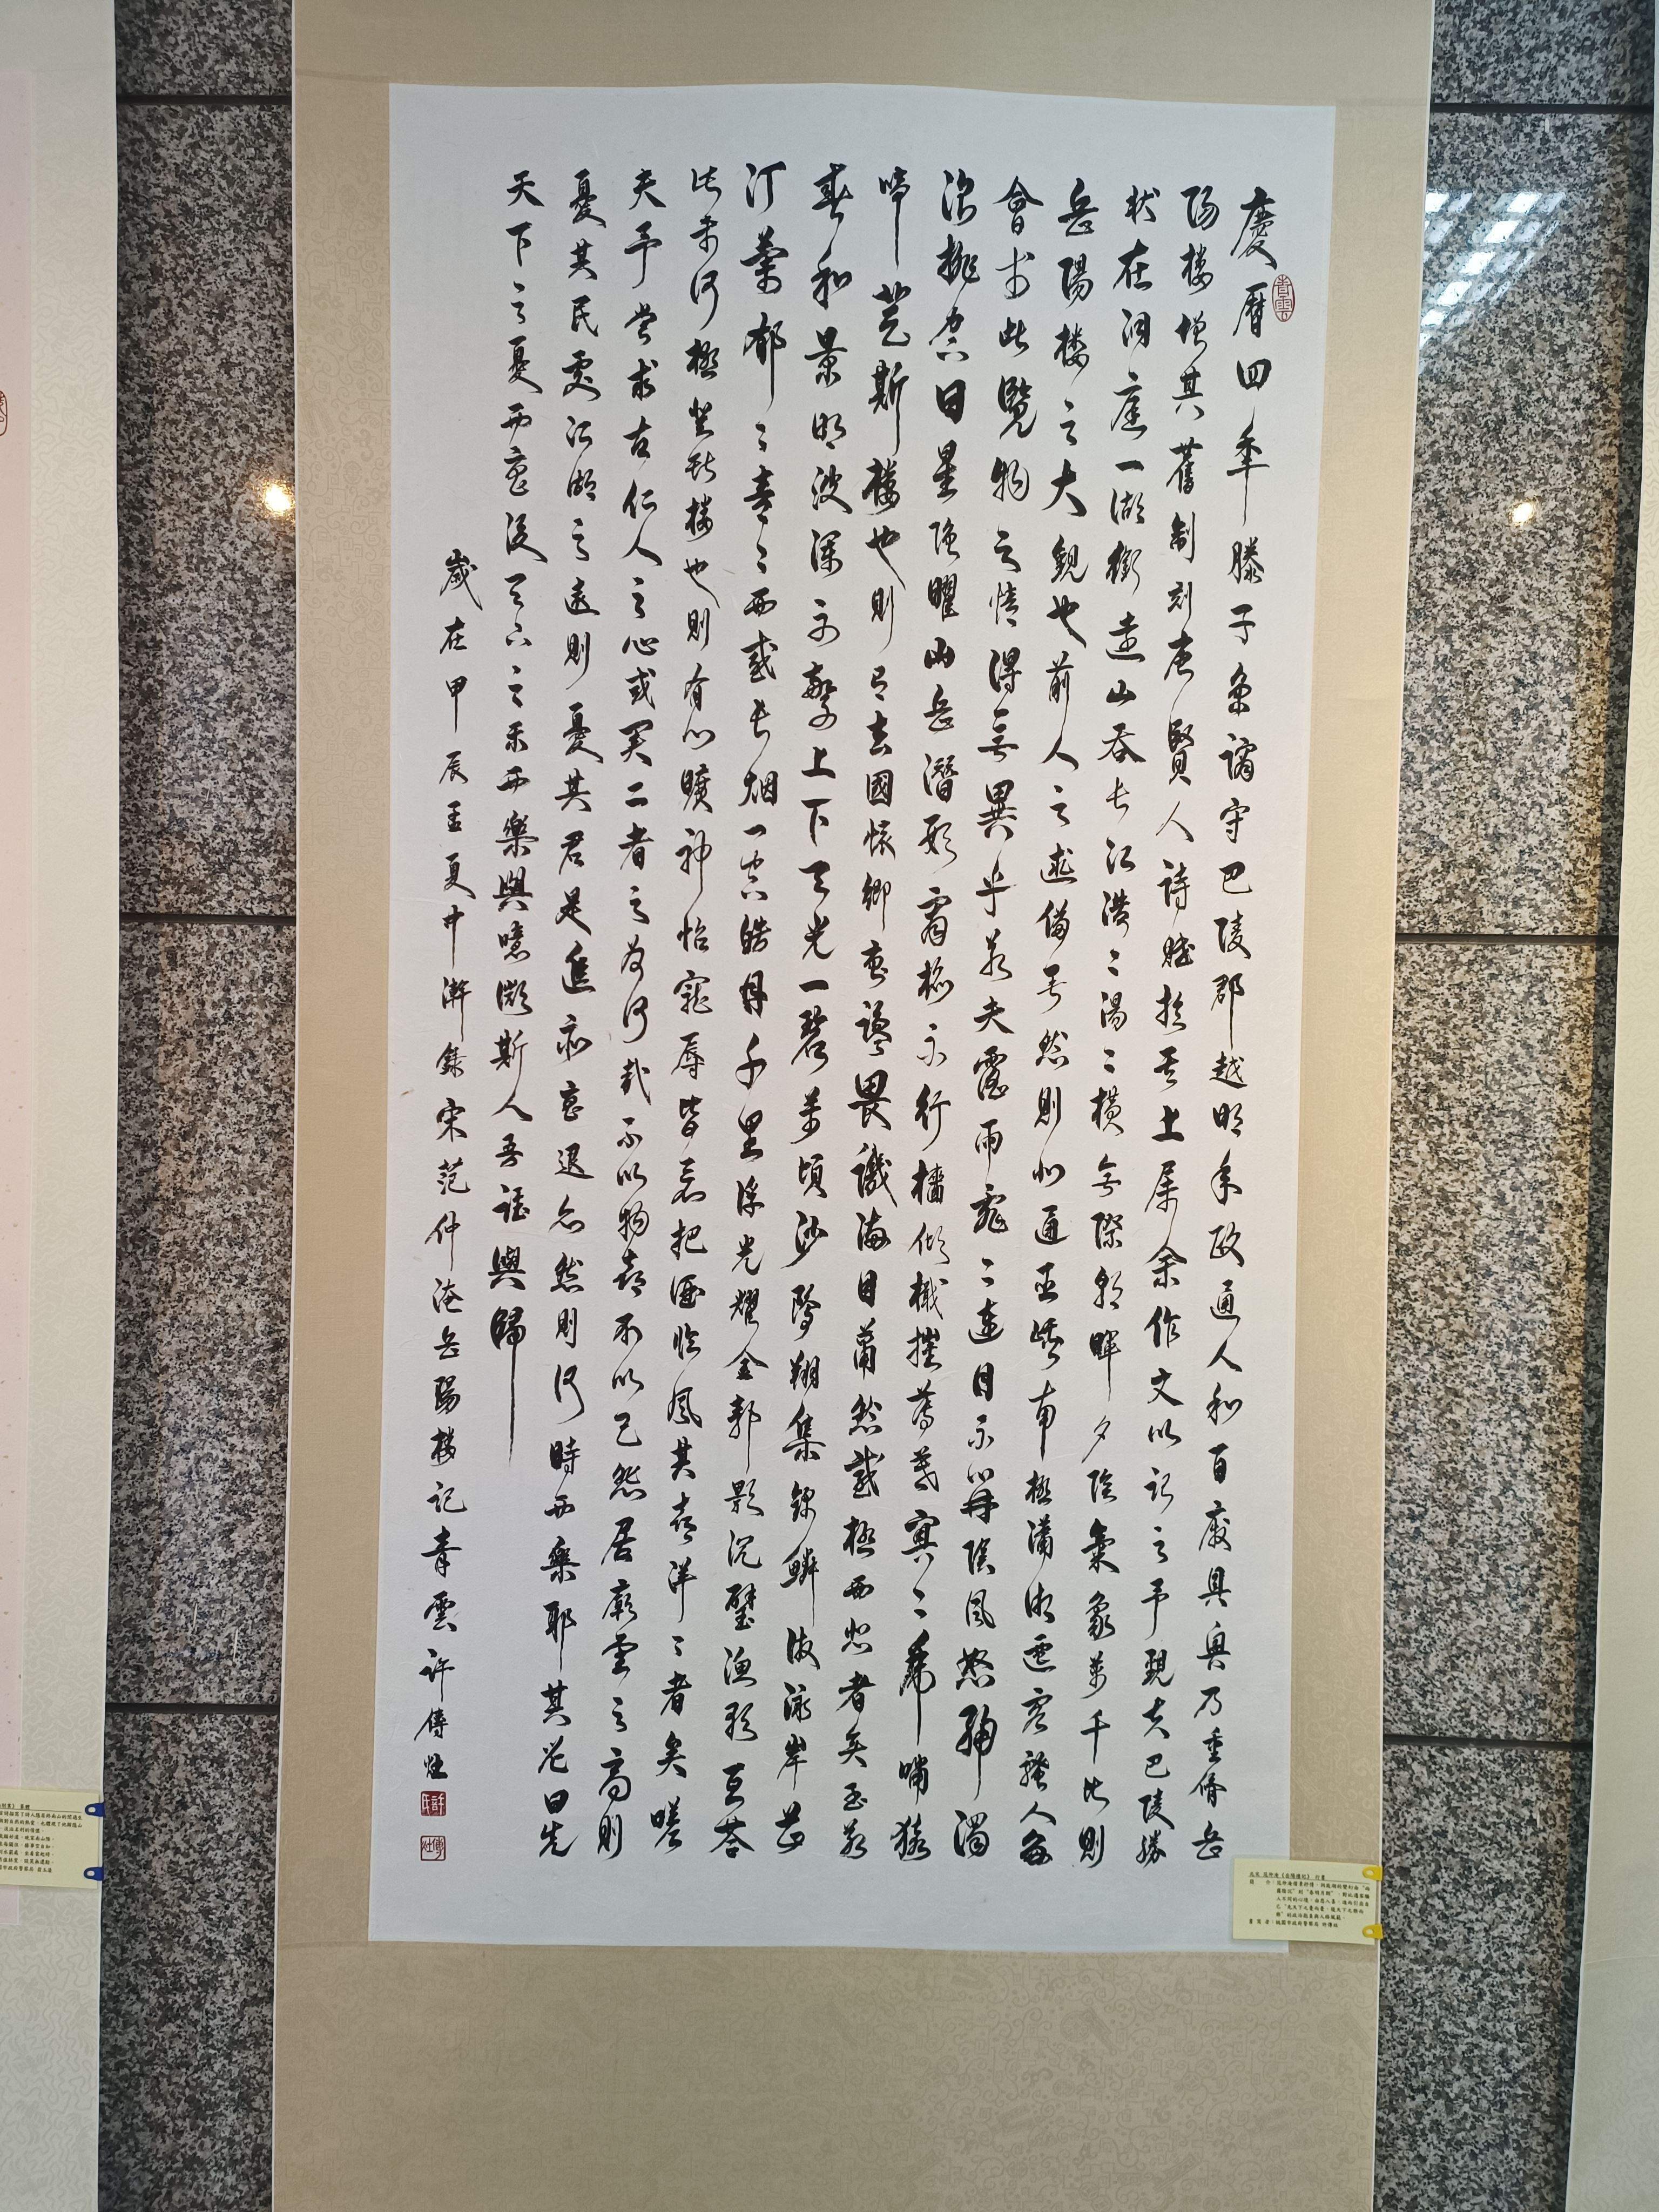 慶曆四年滕子京謫守巴陵郡越明年政通人和百廢具興乃重脩岳
陽樓增其舊制刻唐賢人詩賦於其上屬余作文以記之予觀夫巴陵勝
狀在洞庭一湖銜遠山吞長江浩〻湯〻橫無際朝暉夕陰氣象萬千此則
岳陽樓之大觀也前人之述備矣然則北通巫峽南極瀟湘遷客騷人多
會於此覽物之情得無異乎若夫霪雨霏〻連月不開陰風怒號濁
浪排空日星隱曜山岳潛形商旅不行檣傾楫摧薄暮冥〻虎嘯猿
啼登斯樓也則有去國懷鄉憂讒畏譏滿目蕭然感極而悲者矣至若
春和景明波瀾不驚上下天光一碧萬頃沙鷗翔集錦鱗游泳岸芷
汀蘭郁〻青〻而或長烟一空皓月千里浮光耀金靜影沉璧漁歌互答
此樂何極登斯樓也則有心曠神怡寵辱皆忘把酒臨風其喜洋〻者矣嗟
夫予嘗求古仁人之心或異二者之為何哉不以物喜不以己悲居廟堂之高則
憂其民處江湖之遠則憂其君是進亦憂退亦憂然則何時而樂耶其必曰先
天下之憂而憂後天下之樂而樂與噫微斯人吾誰與歸
歲在甲辰孟夏中澣錄宋范仲淹岳陽樓記青雲許傳灶
青雲
許氏